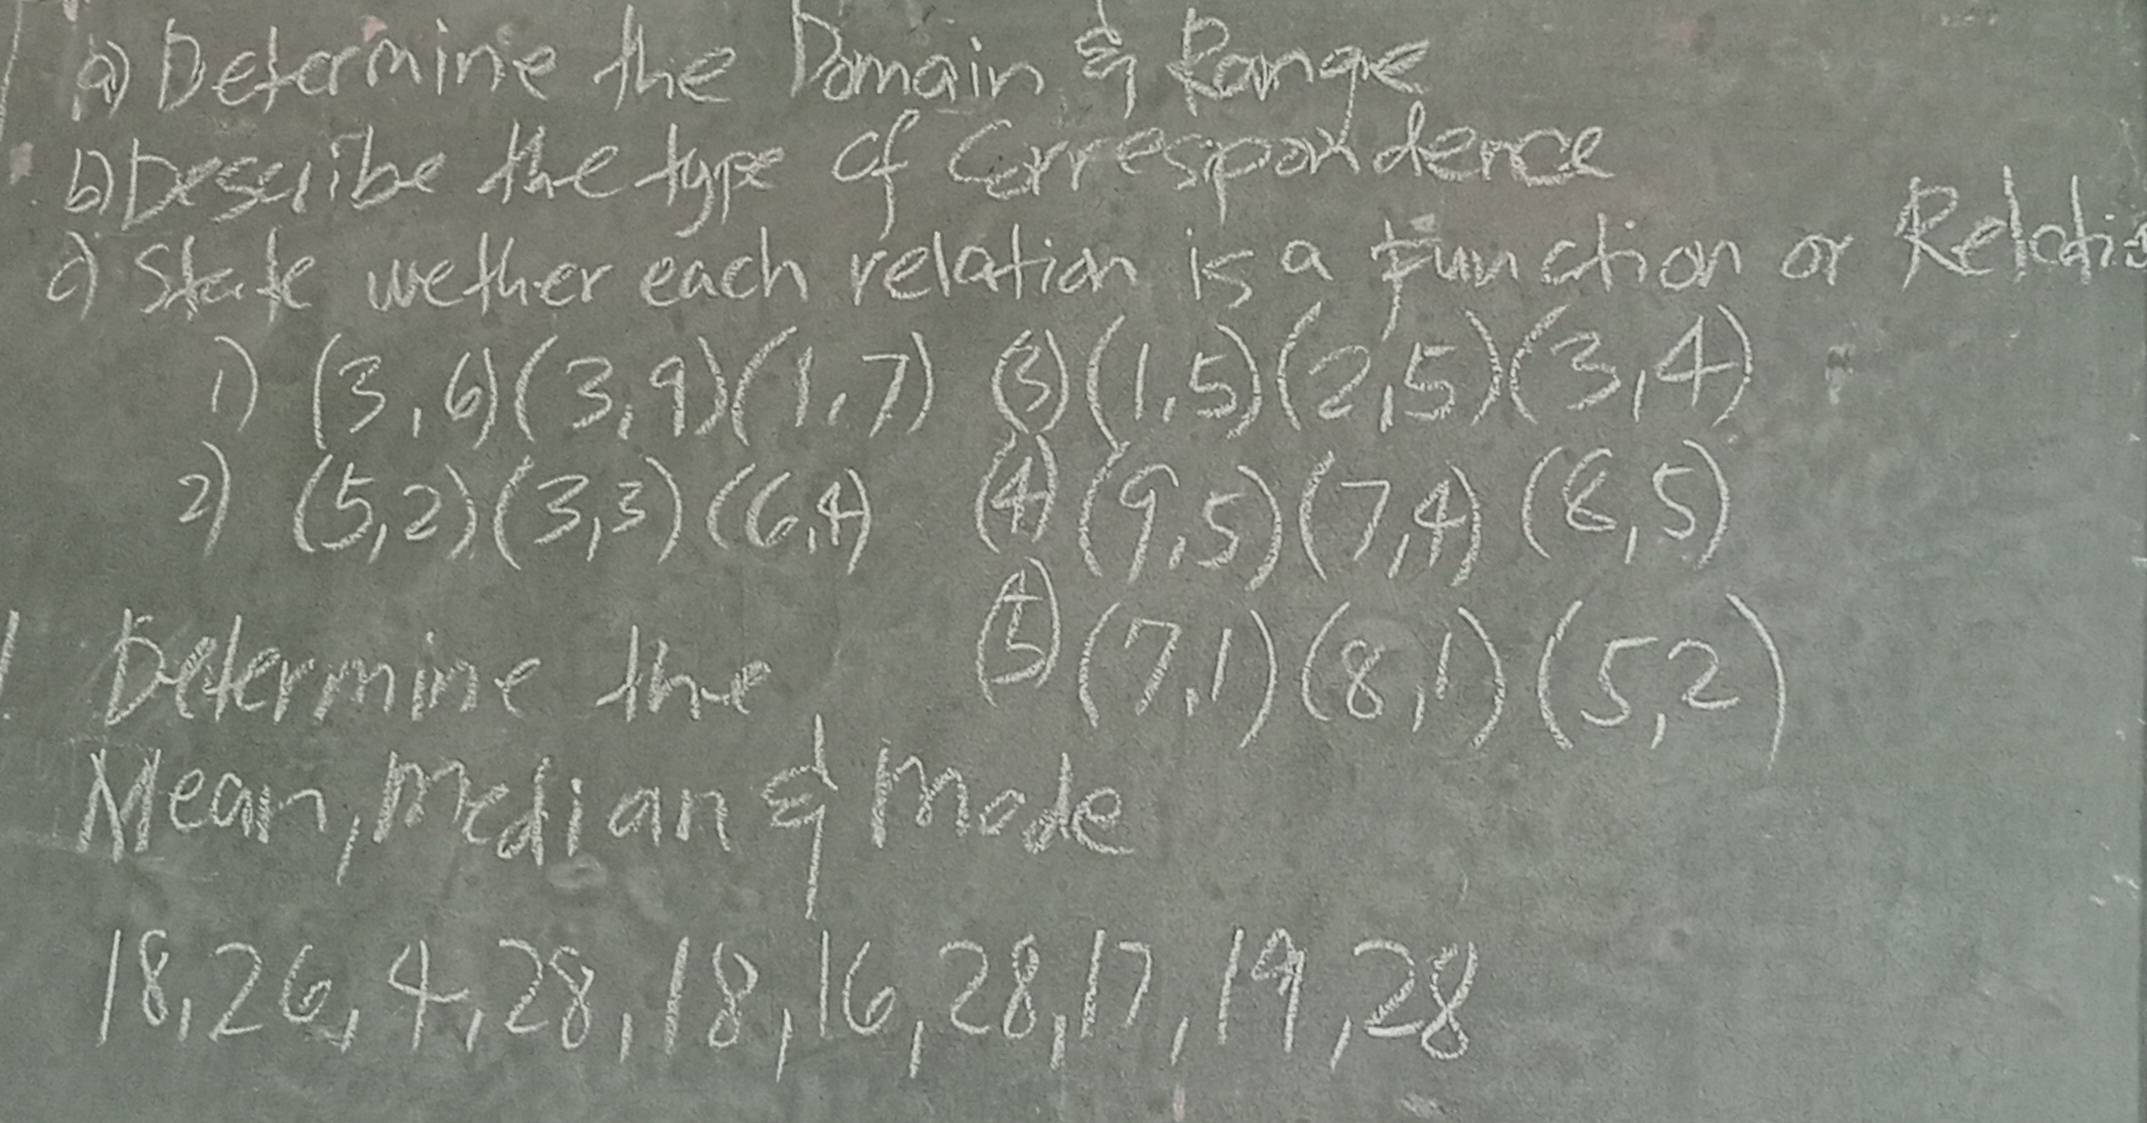 a) Determine the Domain & Range
b) Describe the type of Correspondence
c) State wether each relation is a Function or Relatio
1) (3,6)(3,9)(1,7) (3) (1,5)(2,5)(3,4)
2) (5,2)(3,3)(6,4) (4) (9,5)(7,4)(8,5)
(5) (7,1)(8,1)(5,2)
Determine the
Mean, Median & Mode
18,26,4,28,18,16,28,17,19,28